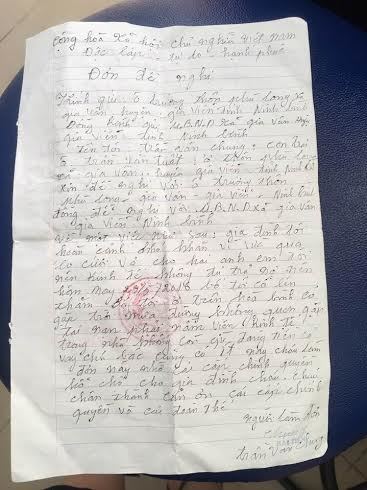 Cộng hoà xã hội chủ nghĩa việt nam
Độc lập - tự do - hạnh phúc
Đơn đề nghị
Kính gửi ô trưởng thôn phú long xã
gia vân huyện gia viễn tỉnh ninh bình
Đồng kính gửi U.B.N.D xã gia vân
gia viễn tỉnh ninh bình
tên tôi trần văn chung: con trai
ô trần văn tuất: ở thôn phú long
xã gia vân: huyện gia viễn tỉnh
xin đề nghị với ô trưởng thôn
phú long - gia vân - gia viễn - Ninh Bình
đồng đề nghị với U.B.N.D xã gia vân
gia viễn Ninh Bình
về một việc như sau: gia đình tôi
hoàn cảnh khó khăn vì vừa qua
cô cưới vợ cho hai anh em tôi
nên kinh tế không dư trả nợ nên
hôm nay 2018 bố tôi có lên
thăm tôi ở trên hoà bình có
gặp trời mưa đường không quen gặp
tai nạn phải nằm viện kinh tế
trong nhà không có gì đáng
vậy các cũng có ít nay cháu làm
đơn này nhờ cái cấp chính quyền
cho gia đình cháu. cháu
chân thành cảm ơn cái cấp chính
quyền và cái đoàn thể
người làm đơn
trần văn chung